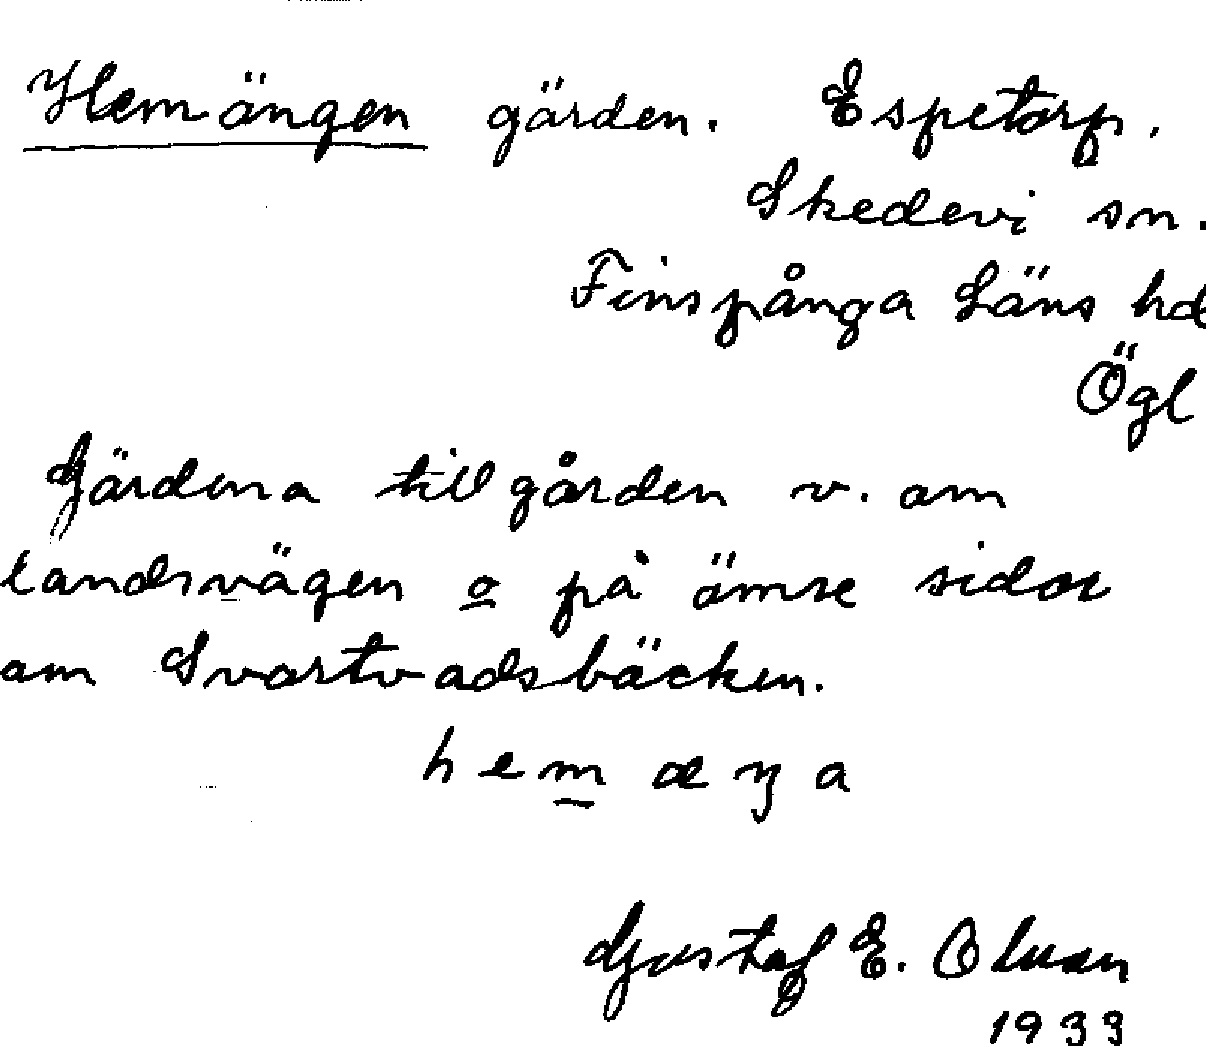 Hemängen gärden. Espetorp.
Skedevi sn.
Finspånga Läns hd
Ögl
Gärdena till gården v. om
landsvägen o på ömse sidor
om Svartvadsbäcken.
hem æŋa
Gustaf E. Olsson
1933